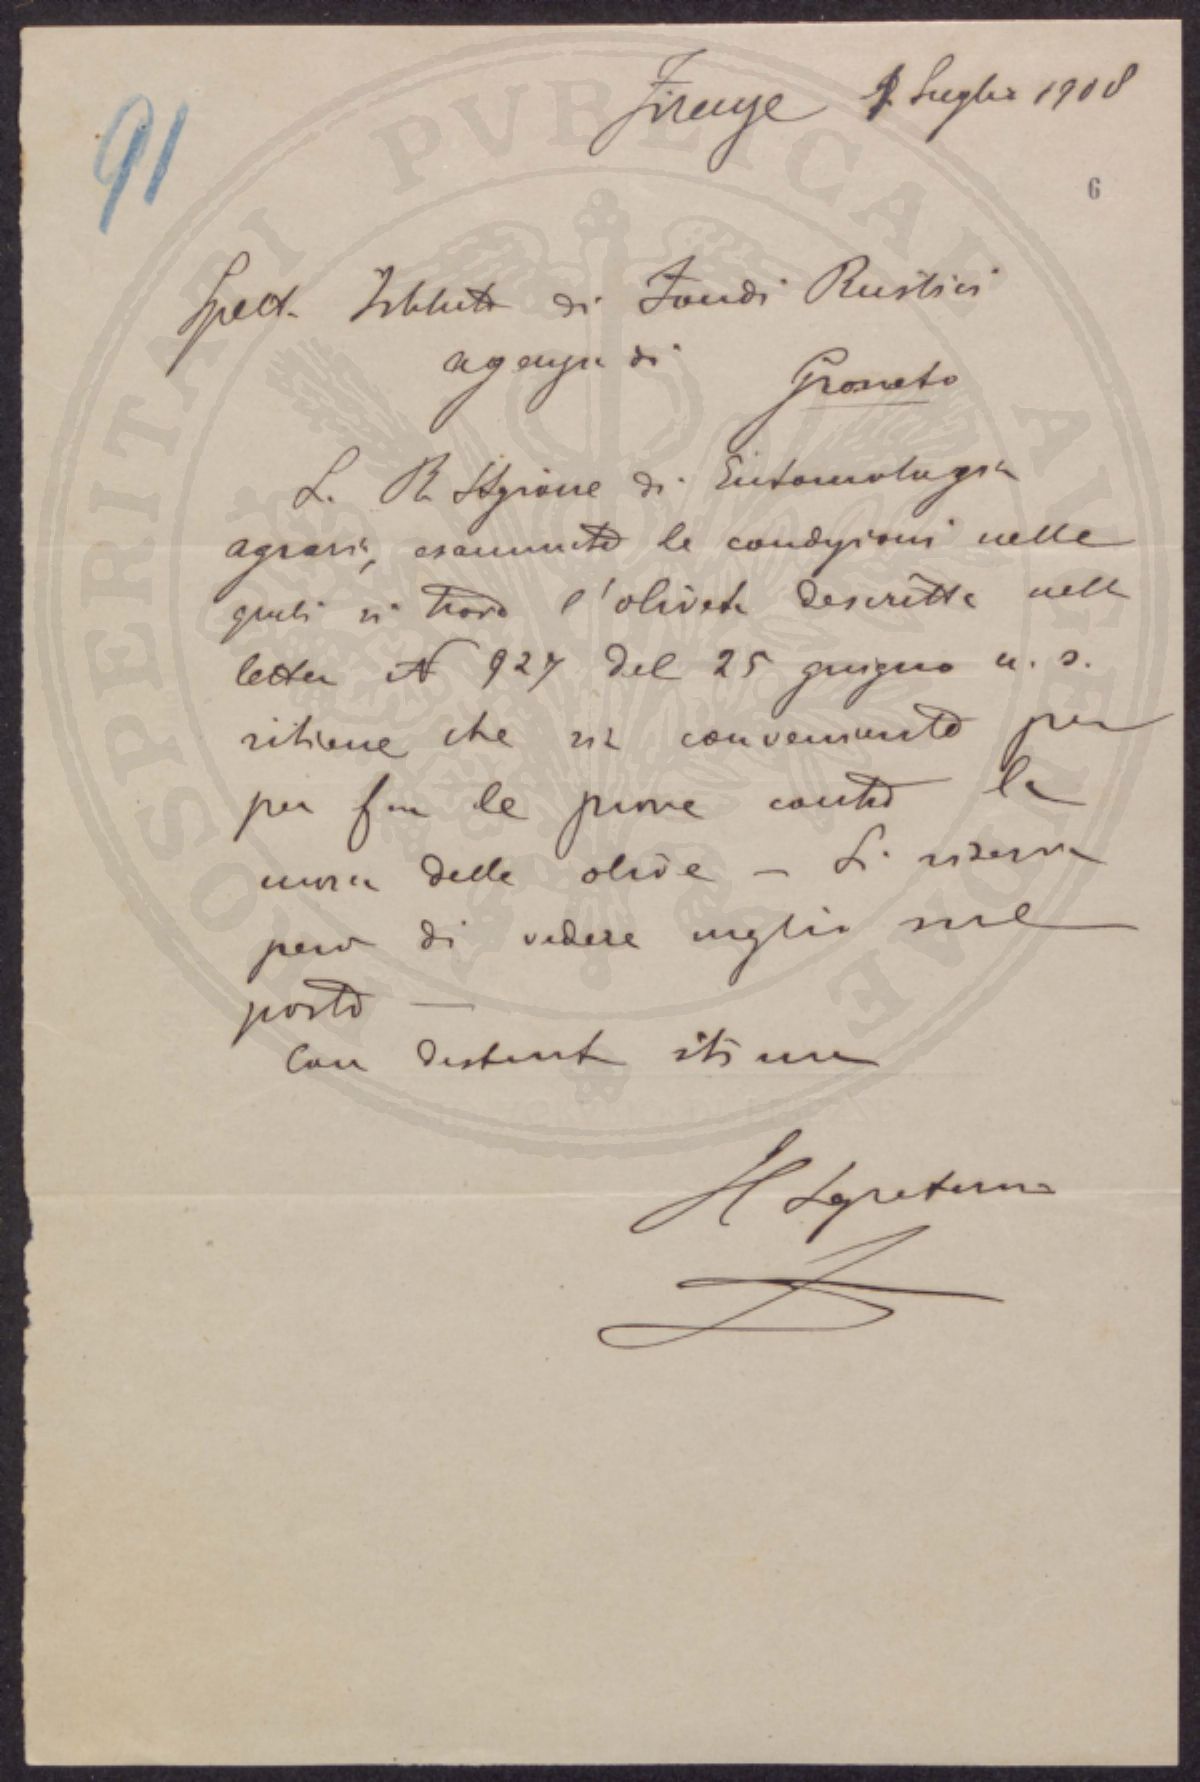 91
Firenze Luglio 1908
6
Spett. Istituto di Fondi Rustici
agenzia di
Grosseto
La R. Stazione di Entomologia
agraria, esaminato le condizioni nelle
quali si trova l'oliveto descritto nella
lettera N 927 del 25 giugno u. s.
ritiene che sia conveniente per
per fare le prove contro la
mosca delle olive – Si riserva
però di vedere meglio sul
posto –
Con distinta stima
Il Segretario
PROSPERITATI PVBLICAE AVGENDAE